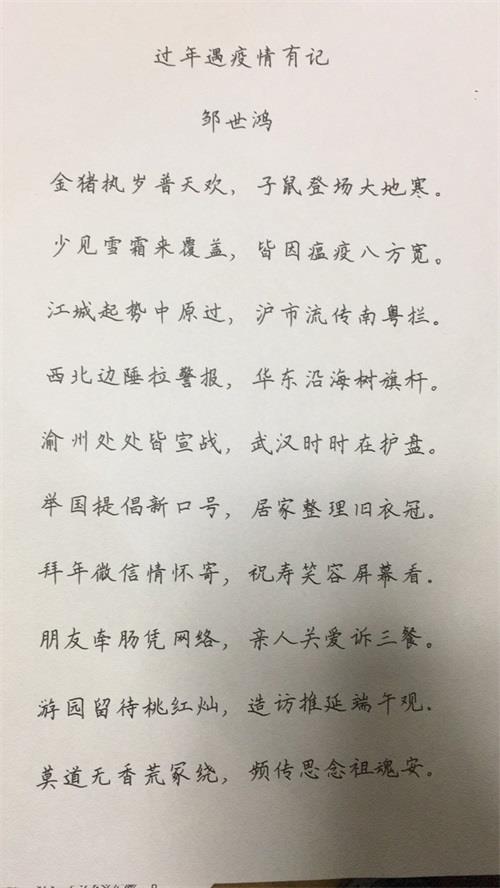 过年遇疫情有记
邹世鸿
金猪执岁普天欢，子鼠登场大地寒。
少见雪霜来覆盖，皆因瘟疫八方宽。
江城起势中原过，沪市流传南粤拦。
西北边陲拉警报，华东沿海树旗杆。
渝州处处皆宣战，武汉时时在护盘。
举国提倡新口号，居家整理旧衣冠。
拜年微信情怀寄，祝寿笑容屏幕看。
朋友牵肠凭网络，亲人关爱诉三餐。
游园留待桃红灿，造访推延端午观。
莫道无香荒冢绕，频传思念祖魂安。